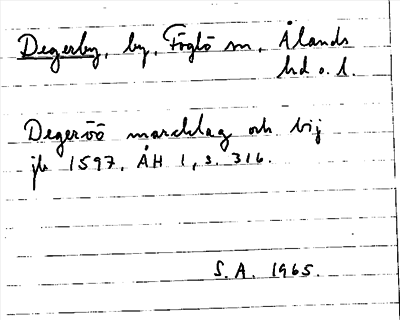 Degerby, by, Föglö sn, Ålands
hd o. l.
Degeröö marchlag och bij
jb 1597, ÅH 1, s. 316.
S. A. 1965.